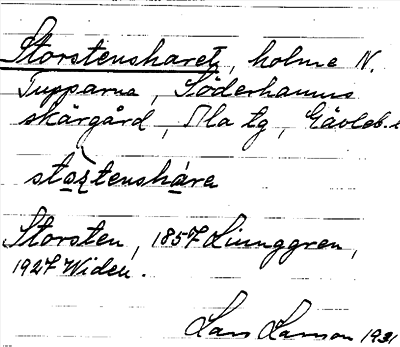 Storstensharet, holme N.
Tupparna, Söderhamns
skärgård, Ala tg, Gävleb.
storstenshara
Storsten, 1857 Ljunggren,
1927 Widen.
Lars Larsson 1931